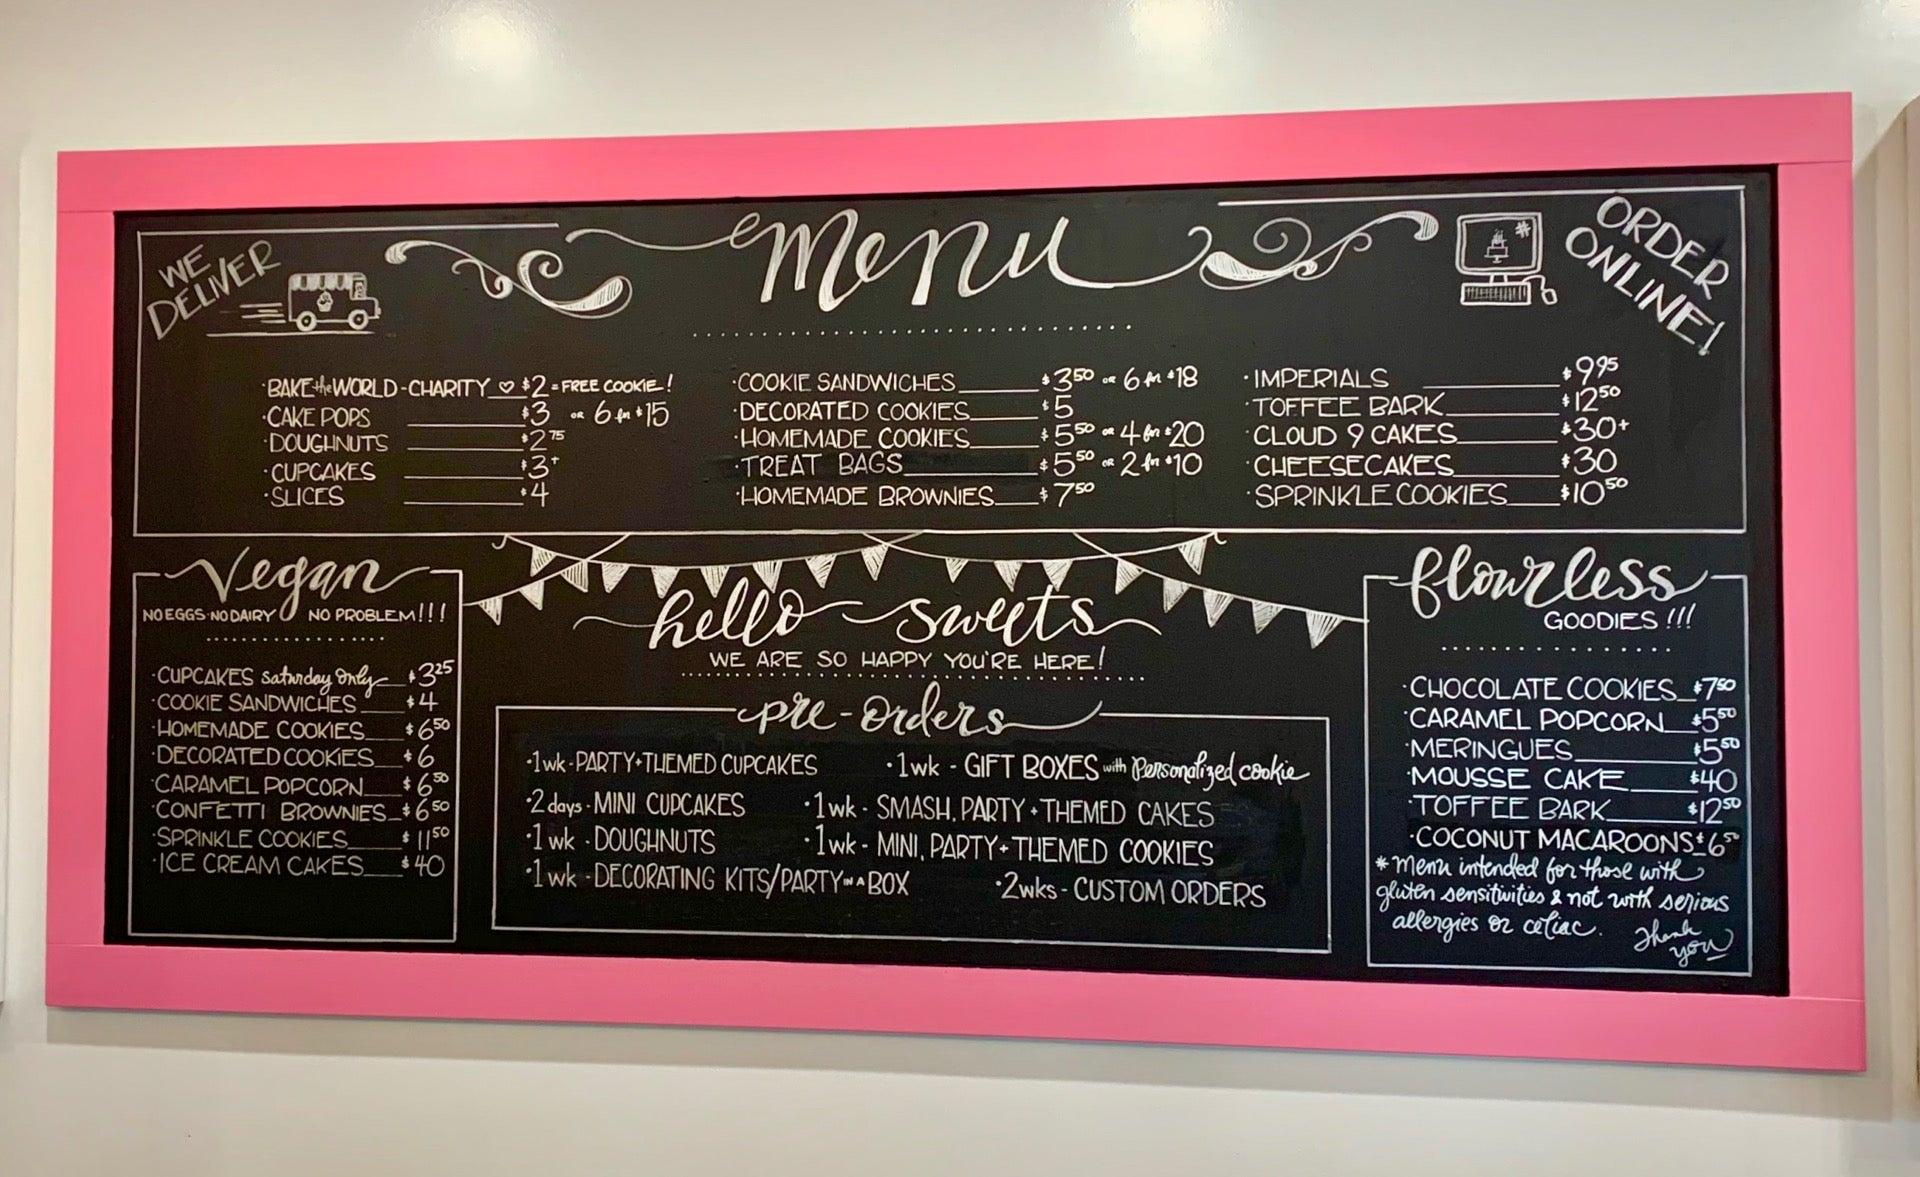 WE DELIVER
menu
ORDER ONLINE!
·BAKE the WORLD - CHARITY ♡ $2 = FREE COOKIE!
·CAKE POPS $3 OR 6 for $15
·DOUGHNUTS $2.75
·CUPCAKES $3+
·SLICES $4
·COOKIE SANDWICHES $3.50 OR 6 for $18
·DECORATED COOKIES $5
·HOMEMADE COOKIES $5.50 OR 4 for $20
·TREAT BAGS $5.50 OR 2 for $10
·HOMEMADE BROWNIES $7.50
·IMPERIALS $9.95
·TOFFEE BARK $12.50
·CLOUD 9 CAKES $30+
·CHEESECAKES $30
·SPRINKLE COOKIES $10.50
Vegan
NO EGGS·NO DAIRY NO PROBLEM!!!
·CUPCAKES saturday only $3.25
·COOKIE SANDWICHES $4
·HOMEMADE COOKIES $6.50
·DECORATED COOKIES $6
·CARAMEL POPCORN $6.50
·CONFETTI BROWNIES $6.50
·SPRINKLE COOKIES $11.50
·ICE CREAM CAKES $40
hello sweets
WE ARE SO HAPPY YOU'RE HERE!
pre-orders
·1wk - PARTY + THEMED CUPCAKES
·1wk - GIFT BOXES with Personalized cookie
·2 days - MINI CUPCAKES
·1wk - SMASH, PARTY + THEMED CAKES
·1 wk - DOUGHNUTS
·1wk - MINI, PARTY + THEMED COOKIES
·1 wk - DECORATING KITS/PARTY IN A BOX
·2wks - CUSTOM ORDERS
flourless
GOODIES!!!
·CHOCOLATE COOKIES $7.50
·CARAMEL POPCORN $5.50
·MERINGUES $5.50
·MOUSSE CAKE $40
·TOFFEE BARK $12.50
·COCONUT MACAROONS $6.50
*Menu intended for those with
gluten sensitivities & not with serious
allergies or celiac.
Thank you